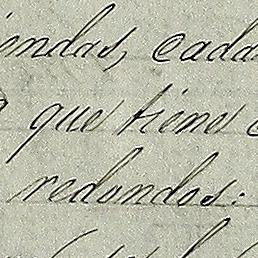 endas, cada
que tiene
redondos: